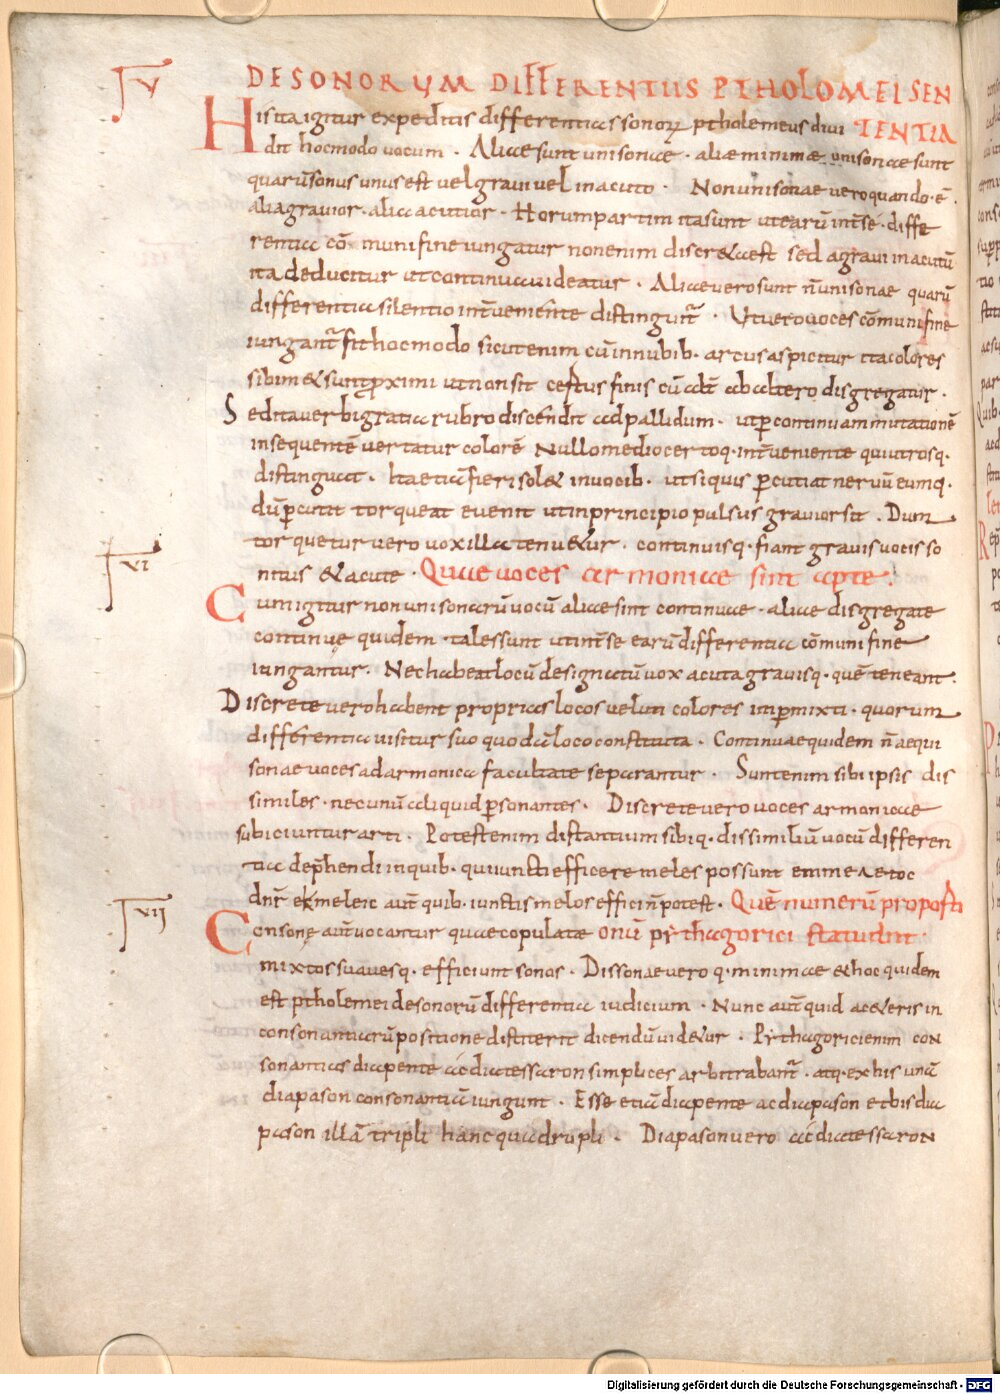 V
DE SONORUM DIFFERENTIIS PTHOLOMEI SEN
His ita igitur expeditis differentias sonoꝝ ptholemeus diui TENTIA
dit hoc modo uocum . Aliae sunt unisonae . aliae minimae unisonae sunt
quarū sonus unus est uel graui uel in acuto . Non unisonae uero quando . ē .
alia grauior . alia acutior . Horum partim ita sunt ut earū int̄ sé . diffe
rentia cō muni fine iungatur non enim discreta est sed a graui in acutū
ita deducitur ut continua uideatur . Aliae uero sunt ñ unisonae quarū
differentia silentio int̄ueniente distingunt̄ . Ut uero uoces cōmuni fine
iungant̄ fit hoc modo sicut enim cū in nubib. arcus aspicitur ita colores
sibimet sunt ꝓximi ut non sit certus finis cū alt̄ ab altero disgregatur .
Sed ita uerbi gratia rubro discendit ad pallidum . ut ꝑ continuam mutationē
in sequentē uertatur colorē Nullo medio certoq. int̄ueniente qui utrosq.
distinguat . Ita etiā fieri solet in uocib. ut si quis ꝑcutiat neruū eumq.
dū ꝑcutit torqueat euenit ut in principio pulsus grauior sit . Dum
torquetur uero uox illa tenuetur . continuisq. fiant grauis uocis so
nitus et acute . Quae uoces armonicae sint apte .
VI
Cum igitur non unisonarū uocū aliae sint continuae . aliae disgregate
continuę quidem . tales sunt ut int̄ se earū differentia cōmuni fine
iungantur . Nec habeat locū designatū uox acuta grauisq. quē teneant .
Discrete uero habent proprias locos uelut colores imꝑmixti . quorum
differentia uisitur suo quodā loco constituta . Continuae quidem ñ aequi
sonae uoces ad armonica facultate separantur . Sunt enim sibi ipsis dis
similes . nec unū aliquid ꝑsonantes . Discrete uero uoces armonicae
subiciuntur arti . Potest enim distantium sibiq. dissimiliū uocū differen
tia dep̄hendi in quib. qui iuncti efficere meles possunt
dn̄r ekmeleic aut̄ quib. iunctis melos effici ñ potest . Quē numerū proposti
VII
Consonę aut̄ uocantur quae copulatae onū pythagorici statuant .
mixtos suauesq. efficiunt sonos . Dissonae uero q. minimae et hoc quidem
est ptholemei de sonorū differentia iudicium . Nunc aut̄ quid a ceteris in
consonantiarū positione distiterit dicendū uidetur . Pythagorici enim con
sonantias diapente ac diatessaron simplices arbitrabant̄ . atq. ex his unā
diapason consonantiā iungunt . Esse etiā diapente ac diapason et bis dia
pason illā tripli hanc quadrupli . Diapason uero ac diatessaron
Digitalisierung gefördert durch die Deutsche Forschungsgemeinschaft - DFG